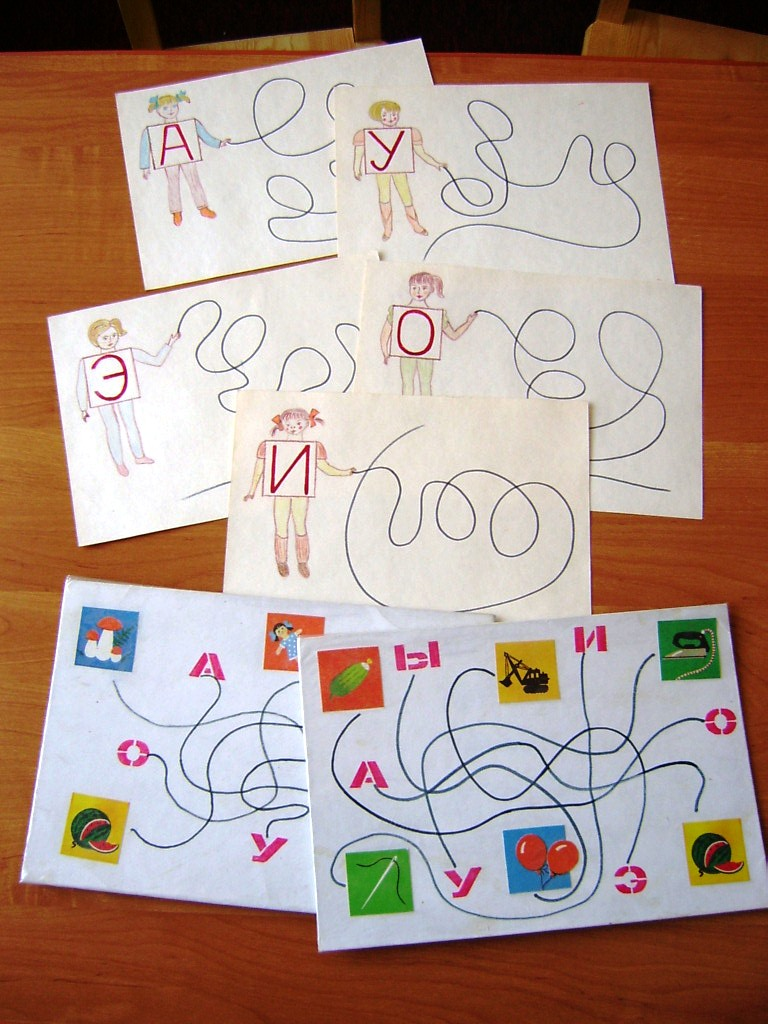 А
У
Э
О
И
А
О
У
Ы
И
О
А
У
Э